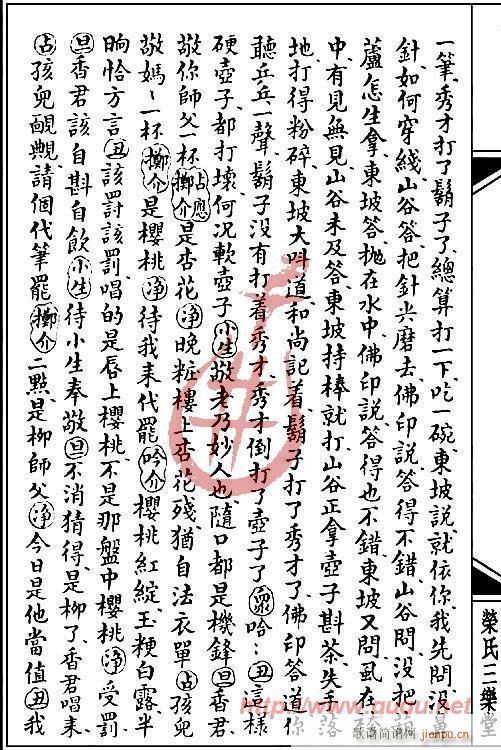 一筆秀才打了鬍子了總算打一下吃一碗東坡說就依你我先問沒
針如何穿綫山谷答把針尖磨去佛印說答得不錯山谷問沒把
蘆怎生拿東坡答拋在水中佛印說答得也不錯東坡又問虱在
中有見無見山谷未及答東坡持棒就打山谷正拿壺子斟茶失手
地打得粉碎東坡大呌道和尚記着鬍子打了秀才了佛印答道你
聽乒乓一聲鬍子沒有打着秀才秀才倒打了壺子了衆哈〻丑這樣
硬壺子都打壞何况軟壺子小生敬老乃妙人也隨口都是機鋒旦香君
敬你師父一杯擲介占應是杏花淨晚粧樓上杏花殘猶自法衣單占孩兒
敬媽〻一杯擲介是櫻桃淨待我来代罷吟介櫻桃紅綻玉粳白露半
晌恰方言丑該罸該罰唱的是唇上櫻桃不是那盤中櫻桃淨受罰
旦香君該自斟自飲小生待小生奉敬旦不消猜得是柳了香君唱来
占孩兒靦覥請個代筆罷擲介二點是柳師父淨今日是他當值丑我
榮氏三樂
堂
http://www.guqu.net
歌谱简谱网
jianpu.cn